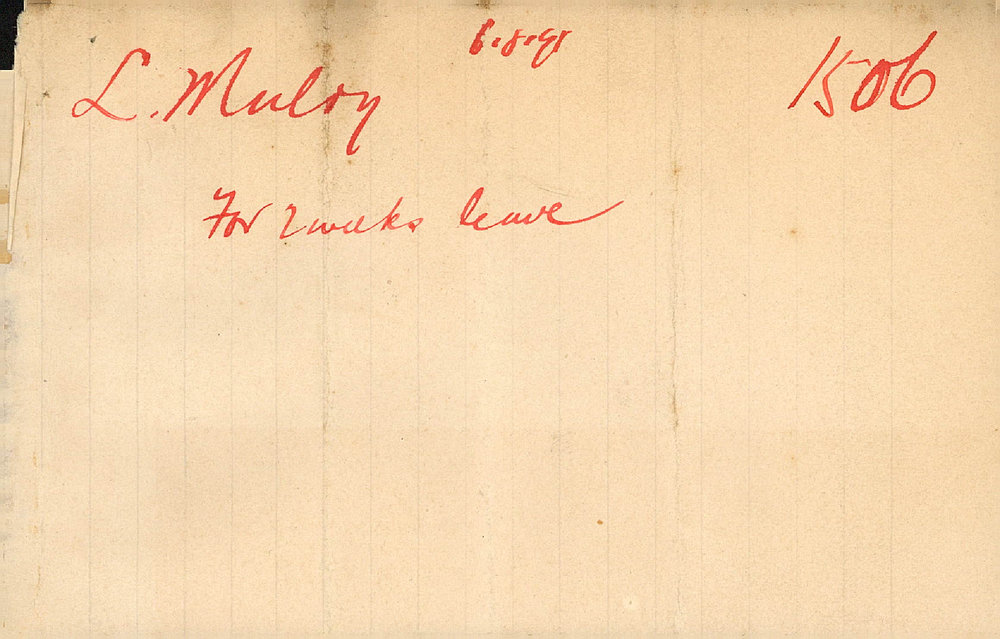 L. Muloy 1506
For 2 weeks leave